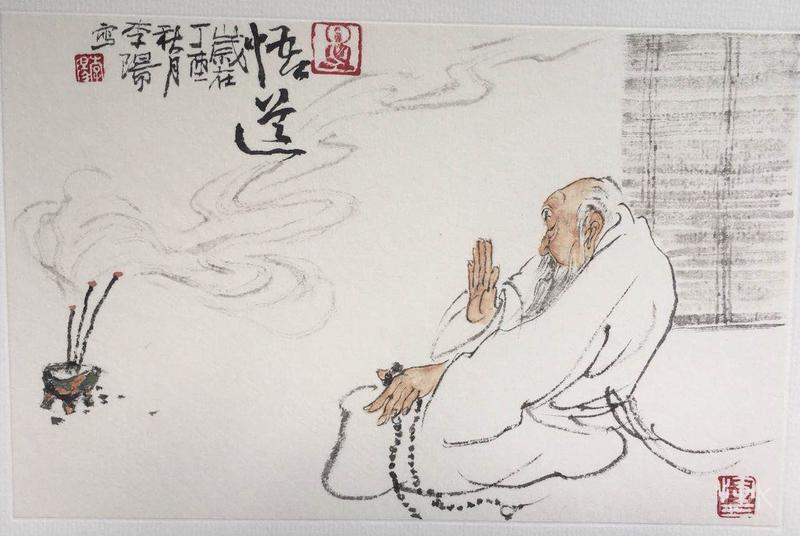 悟道
歲在
丁酉
秋月
李陽
写